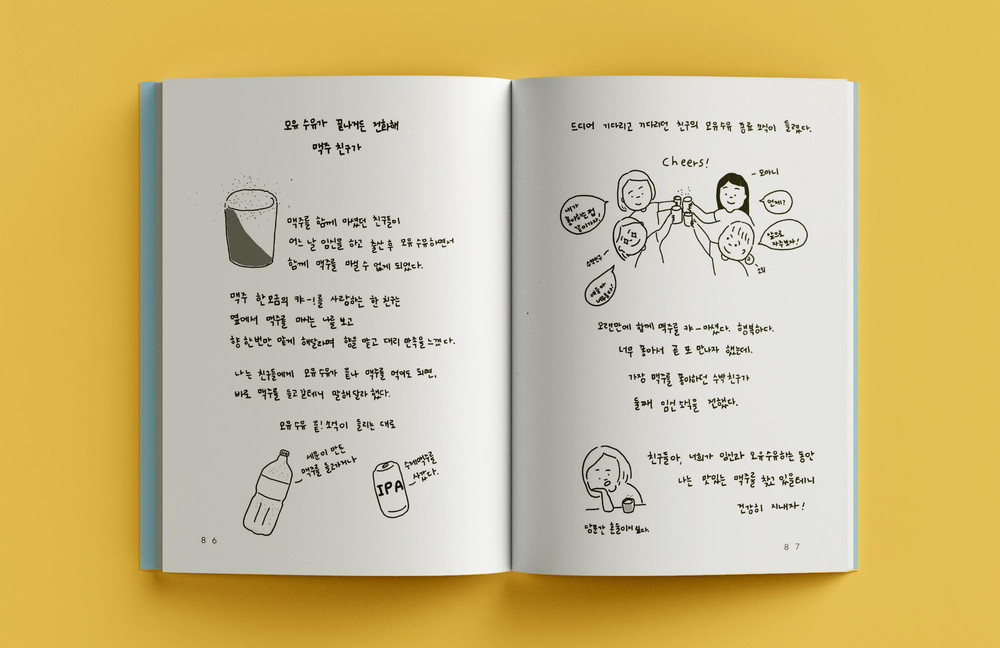 모유 수유가 끝나거든 전화해
맥주 친구가
맥주를 함께 마셨던 친구들이
어느 날 임신을 하고 출산 후 모유 수유하면서
함께 맥주를 마실 수 없게 되었다.
맥주 한 모금의 캬-!를 사랑하는 한 친구는
옆에서 맥주를 마시는 나를 보고
향 한번만 맡게 해달라며 향을 맡고 대리 만족을 느꼈다.
나는 친구들에게 모유수유가 끝나 맥주를 먹어도 되면,
바로 맥주를 들고 갈테니 말해달라 했다.
모유수유 끝! 소식이 들리는 대로
맥주를 들려가거나
수제맥주를
사갔다.
IPA
86
드디어 기다리고 기다리던 친구의 모유수유 종료 소식이 들렸다.
Cheers!
내가
좋아하는 컵
같이가자!
언제?
앞으로
자주보자!
수박친구
오랜만에 함께 맥주를 캬-마셨다. 행복하다.
너무 좋아서 곧 또 만나자 했는데,
가장 맥주를 좋아하던 수박친구가
둘째 임신 소식을 전했다.
친구들아, 너희가 임신과 모유수유하는 동안
나는 맛있는 맥주를 찾고 있을테니
건강히 지내자!
당분간 혼술이지 싶다.
87